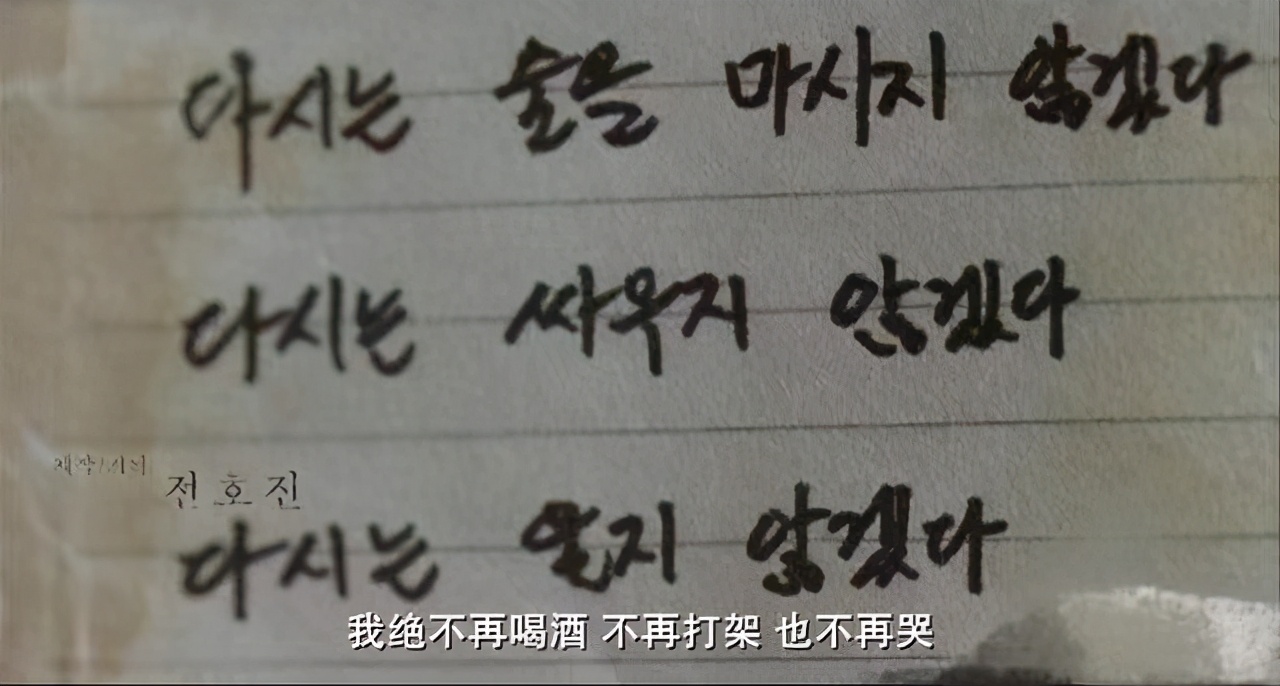 다시는 술을 마시지 않겠다
다시는 싸우지 않겠다
전호진
다시는 울지 않겠다
我绝不再喝酒 不再打架 也不再哭